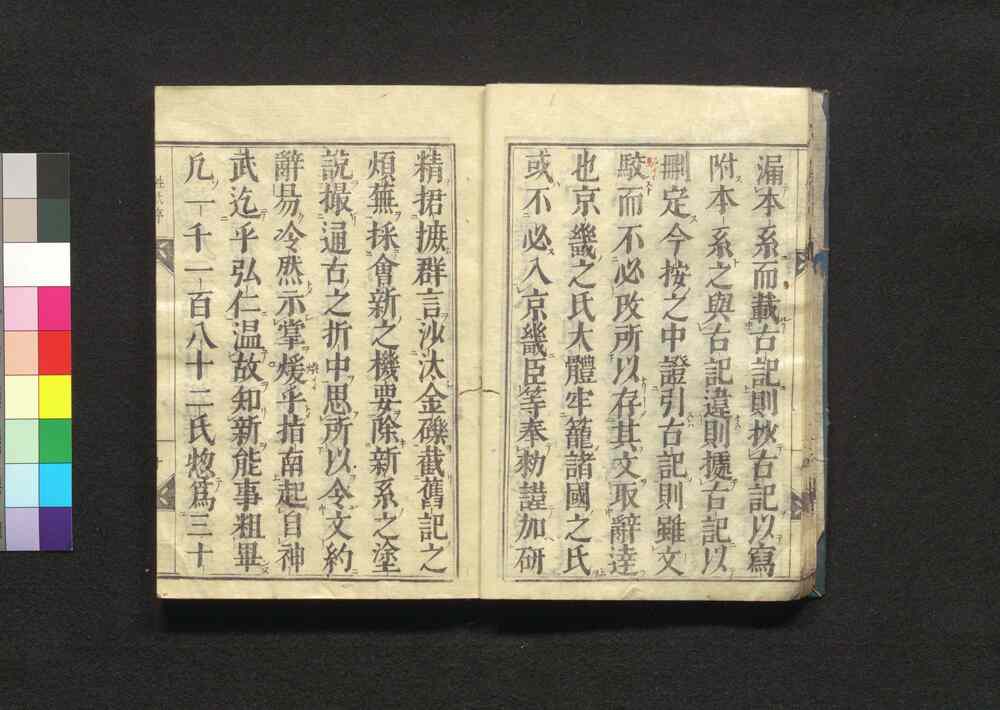 漏本系而載古記則抄古記以寫
附本系之與古記違則據古記以
刪定今按之中證引古記則雖文
駮而不必改所以存其文取辭達
也京畿之氏大體牢籠諸國之氏
或不必入京畿臣等奉勑謹加研
精捃摭群言沙汰金礫截舊記之
煩蕪採會新之機要除新系之塗
說撮通古之折中思所以令文約
辭易冷然示掌煖乎指南起自神
武迄乎弘仁温故知新能事粗畢
凡一千一百八十二氏惣爲三十